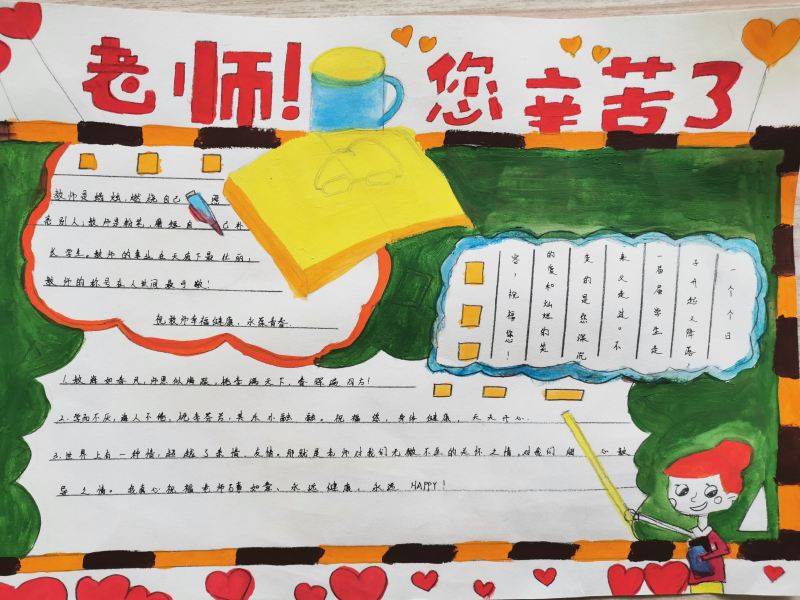 老师!您辛苦了
教师是蜡烛,燃烧自己 照
亮别人;教师是粉笔,磨短自己 补
长学生。教师的事业在天底下最壮丽;
教师的称号在人世间最可敬!
祝教师幸福健康,永葆青春
一个个日
子升起又降落,
一届届学生走
来又走过。不
变的是您深沉
的爱和灿烂的笑
容!祝福您!
1.教诲如春风,师恩似海深,桃李满天下,春晖遍四方!
2.学而不厌,诲人不倦,桃李芬芳,其乐亦融融。祝福您,身体健康,天天开心.
3.世界上有一种情,超越了亲情、友情。那就是老师对我们无微不至的关怀之情,对我们 心教
导之情。我真心祝福老师万事如意、永远健康,永远HAPPY!